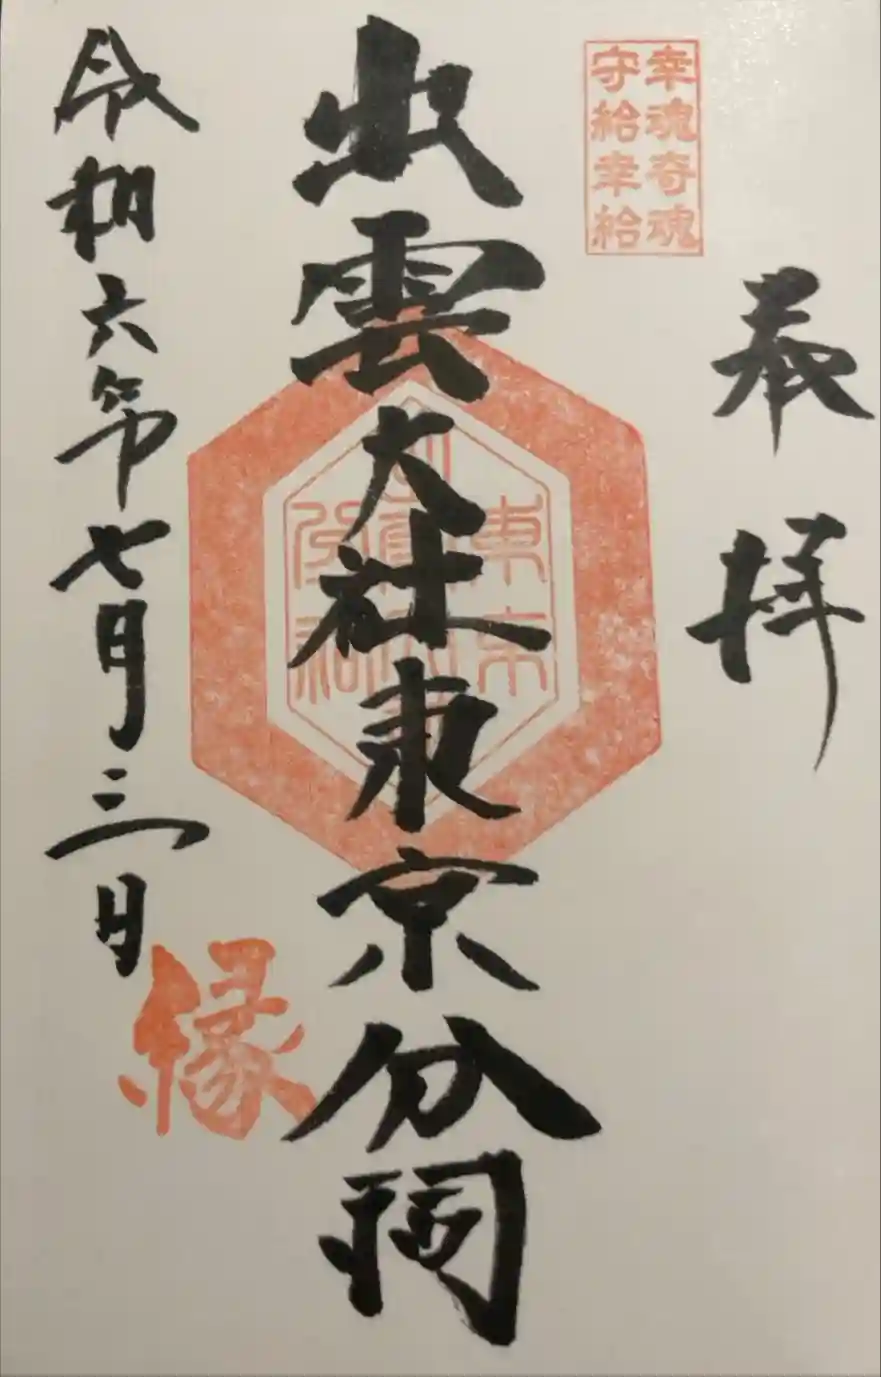 幸魂奇魂
守給幸給
奉拝
出雲大社東京分祠
東京
出雲大社
分祠
令和六年七月三日
縁